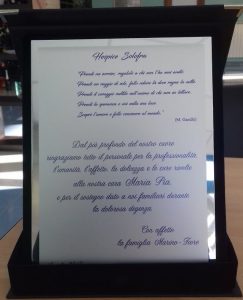 Hospice Solofra
"Prendi un sorriso, regalalo a chi non l'ha mai avuto.
Prendi un raggio di sole, fallo volare là dove regna la notte.
Prendi il coraggio mettilo nell'animo di chi non sa lottare.
Prendi la speranza e vivi nella sua luce.
Scopri l'amore e fallo conoscere al mondo."
(M. Gandhi)
Dal più profondo del nostro cuore
ringraziamo tutto il personale per la professionalità,
l'umanità, l'affetto, la dolcezza e le cure rivolte
alla nostra cara Maria Pia
e per il sostegno dato a noi familiari durante
la dolorosa degenza.
Con affetto
la famiglia Marino-Fiore